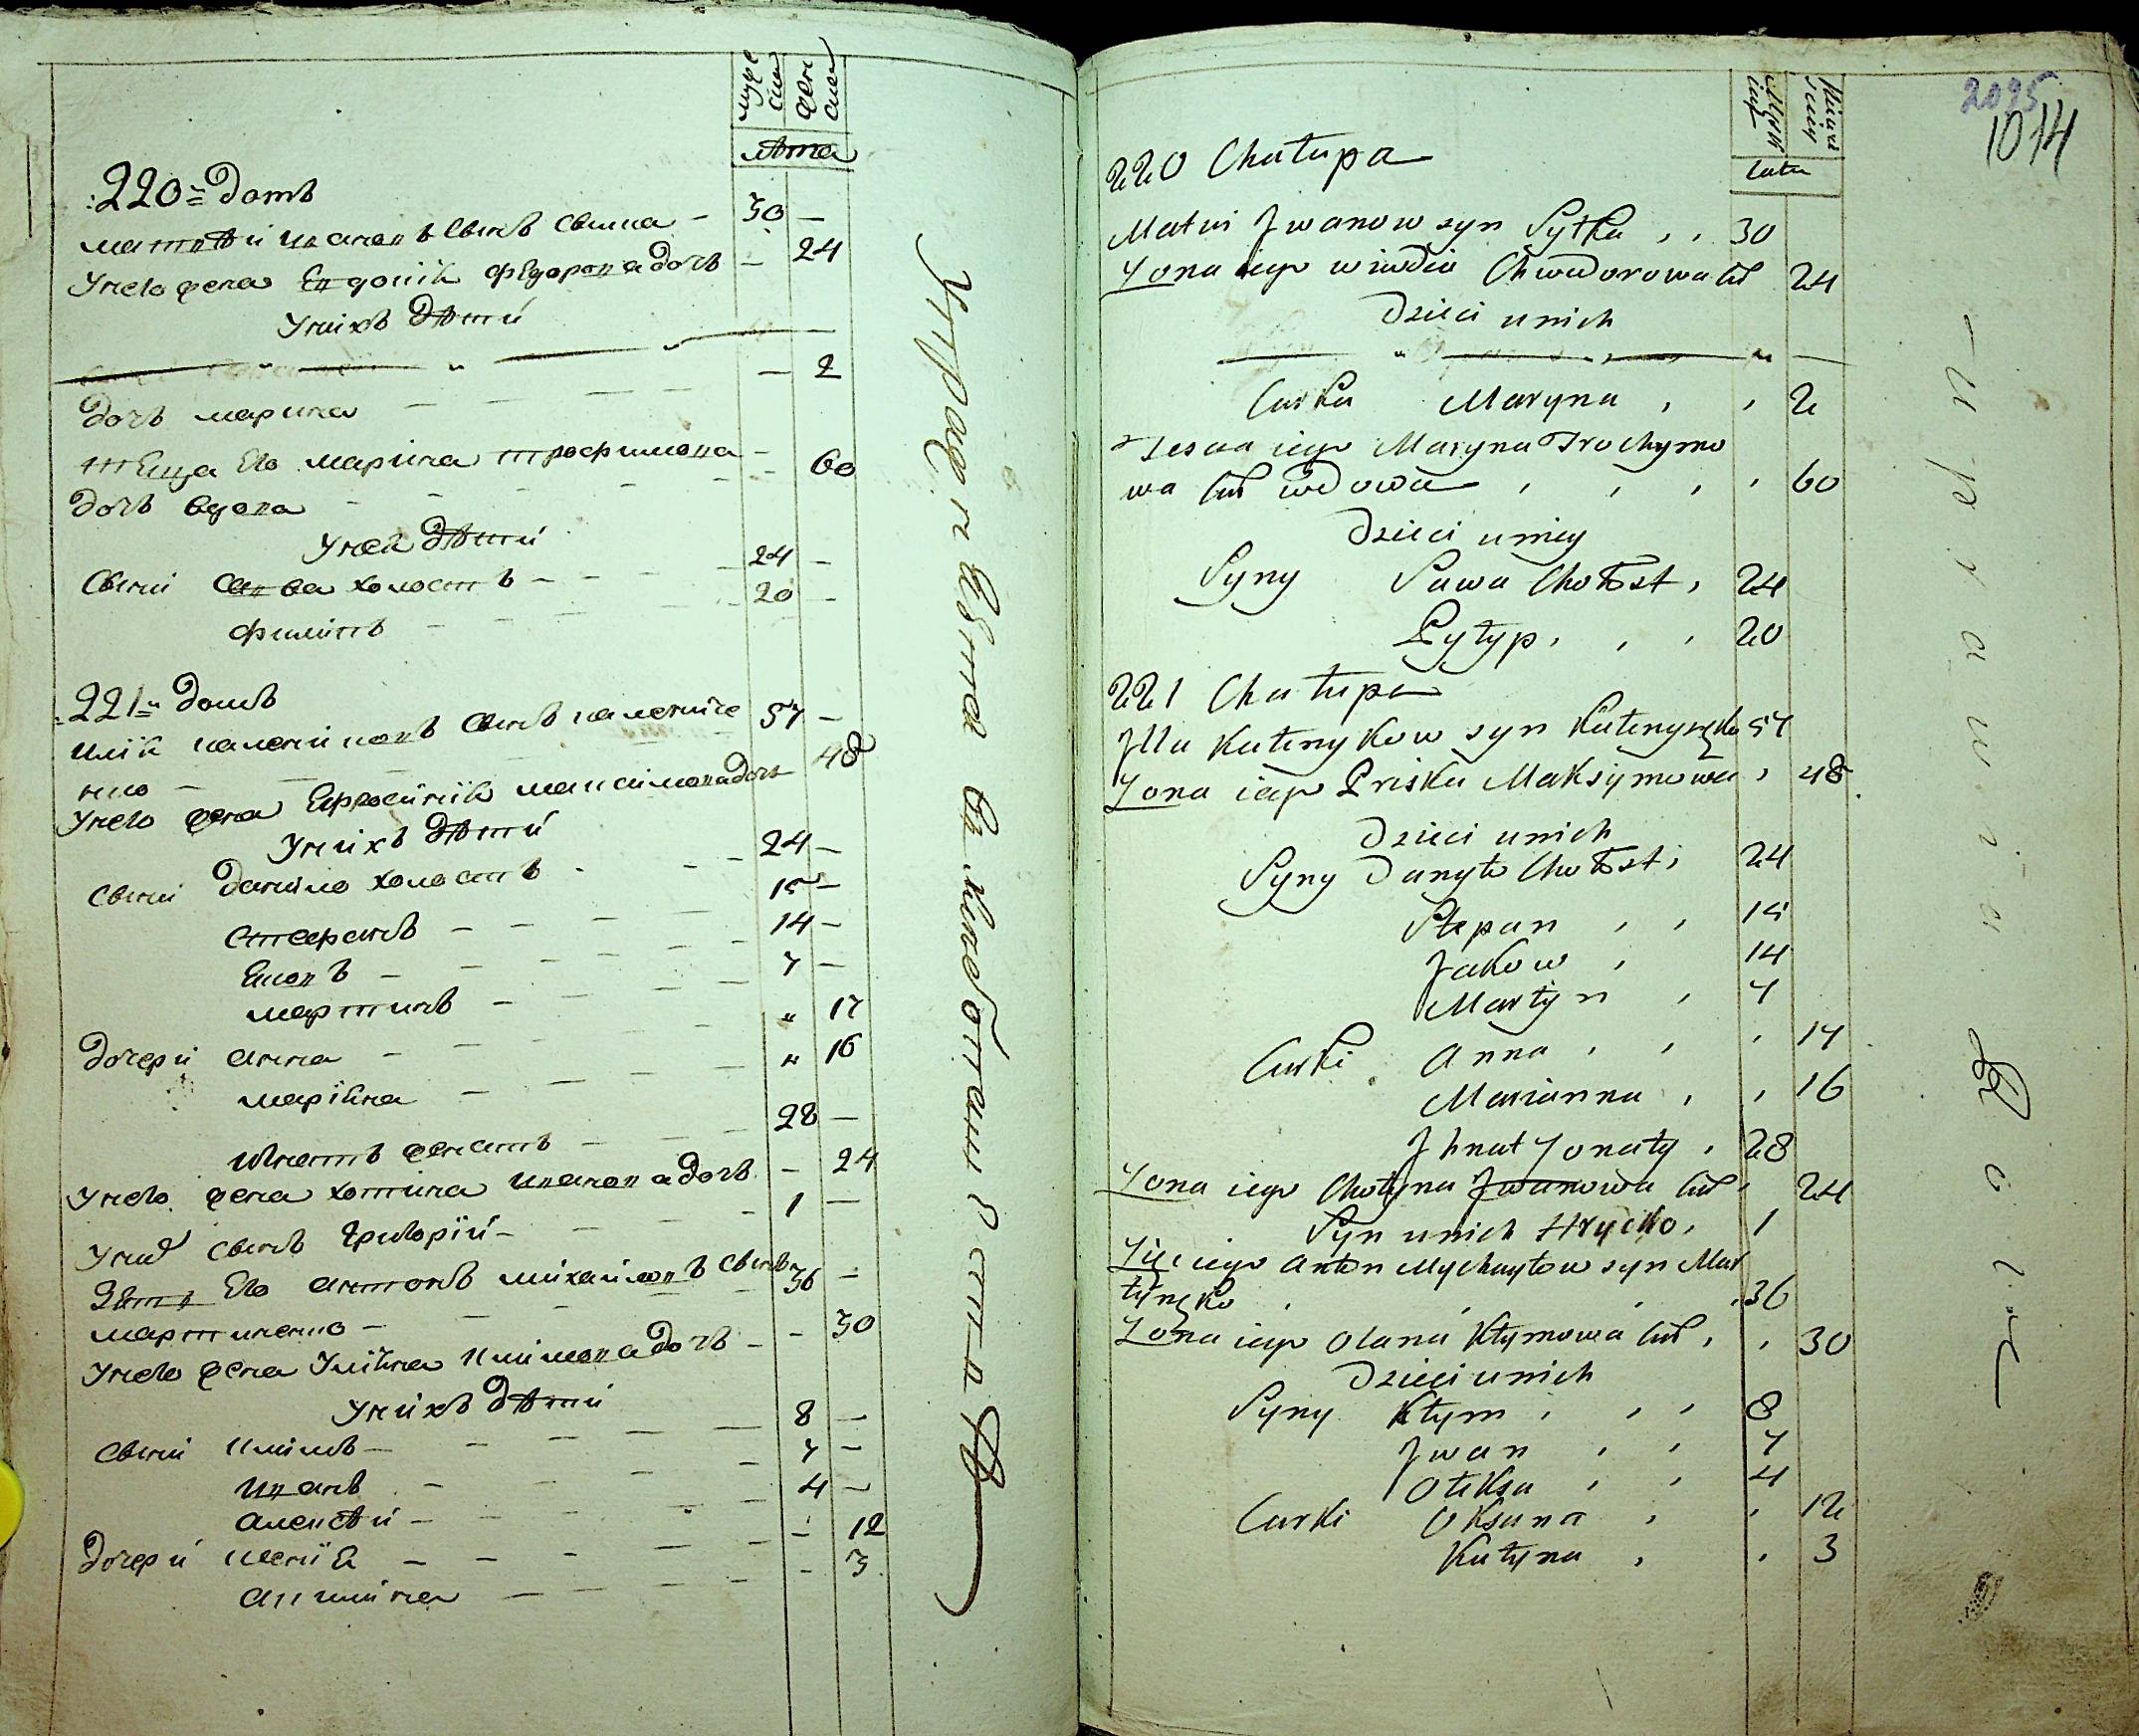 муже
ска
жен
ска
лѣта
220 Домъ
матвѣй ивановъ сынъ свитка - 30 -
У него жена Евдокія федорова дочь - 24
У них дѣти
дочь марина - 2
теща его марина трофимова
дочь вдова - 60
У ней дѣти
Сыни Савва холостъ - 24 -
филипъ - 20 -
221 Домъ
илія каленіковъ сынъ каленіче
нко - 57 -
У него жена Ефросинія максимова дочь 48
У нихъ дѣти
Сыни Данило холостъ - 24 -
Стефанъ - 15 -
Яковъ - 14 -
мартинъ - 7 -
дочери анна - " 17
маріана - " 16
игнатъ женатъ - 28 -
У него жена хотина иванова дочь - 24
У нихъ сынъ григорій - 1 -
Зять Его антонъ михайловъ сынъ
мартиненко - 36 -
У него жена Уліяна климова дочь - 30
У нихъ дѣти
Сыни климъ - 8 -
иванъ - 7 -
алексѣй - 4 -
дочери ксенія - 12
акилина - 3
220 Chałupa
Męzk
iey
Kture
lata
2095
1014
Matwi Jwanow syn Sytka , , 30
Żona iego wiwdia Chwedorowa cur 24
Dzieci unich
Curka Maryna , , 2
Tescza iego Maryna Trochymo
wa cur wdowa , , , , 60
Dzieci uniey
Syny Sawa Chołost , 24
Pyłyp , , , 20
221 Chałupa
Jlla Kałenykow syn Kałenyczęko 57
Żona iego Priska Maksymowa , 48
Dzieci unich
Syny Danyło Chołost , 24
Stepan , , 15
Jakow , 14
Martyn , 7
Curki Anna , , , 17
Marianna , , 16
Jhnat Żonaty , 28
Żona iego Chotyna Jwanowa cur , 24
Syn unich Hrycko , 1
Zięc iego Anton Mychayłow syn Mar
tynęko , , , 36
Żona iego Olana Kłymowa cur , , 30
Dzieci unich
Syny Kłym , , , 8
Jwan , , 7
Ołeksa , , 4
Curki Oksana , , 12
Kułyna , , 3